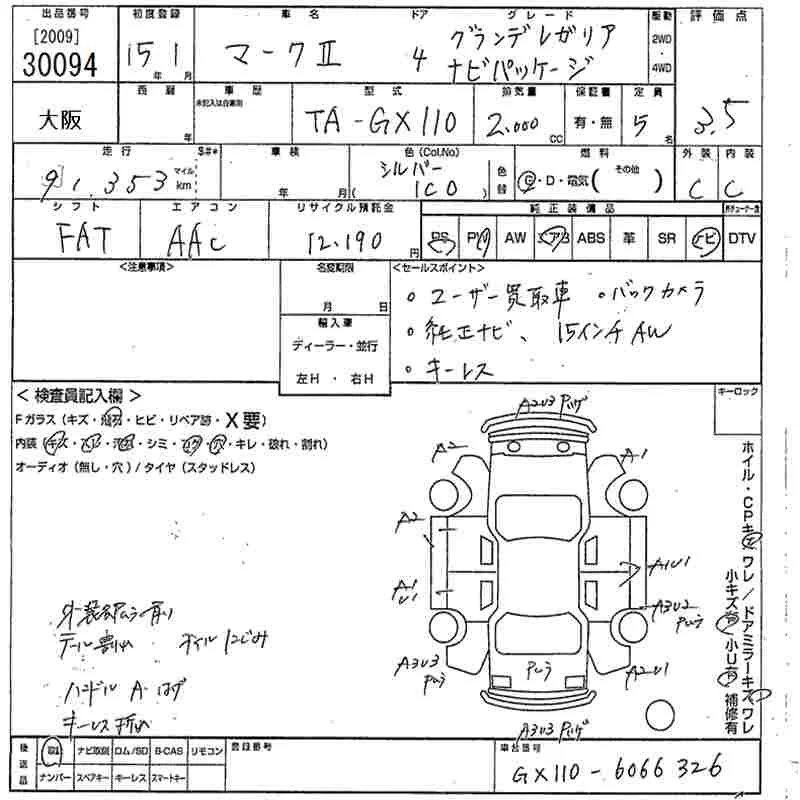 出品番号 初度登録 車名 ドア グレード 駆動 評価点
[2009]
30094
15年 1月
マークⅡ
4
グランデレガリア
ナビパッケージ
2WD
4WD
3.5
大阪
西暦 年
車歴
未記入は自家用
型式
TA-GX110
排気量
2,000 cc
保証書
有・無
定員
5名
走行 $#*
91,353 マイル km
車検
年 月
色(Col.No)
シルバー
(1C0)
色替
燃料
G・D・電気( その他 )
外装 内装
C C
シフト
FAT
エアコン
AAC
リサイクル預託金
12,190 円
純正装備品
PS PW AW エアB ABS 革 SR ナビ DTV
<注意事項>
名変期限
月 日
輸入車
ディーラー・並行
左H ・ 右H
<セールスポイント>
・ユーザー買取車 ・バックカメラ
・純正ナビ、 15インチAW
・キーレス
キーロック
<検査員記入欄>
Fガラス (キズ・飛石・ヒビ・リペア跡・X要)
内装 (キズ・スレ・汚れ・シミ・コゲ・穴・キレ・破れ・割れ)
オーディオ (無し・穴) / タイヤ (スタッドレス)
A2 A1
A2
A1
U1
A1U1
A3U2
A3U3
A2U1
A3U3
外装 有り
テール割れ オイルにじみ
ハンドル A・ハゲ
キーレス折れ
ホイル・CPキズワレ/ドアミラーキズワレ
小キズ有 小U有 補修有
後送品
取説 ナビ取説 ロム/SD B-CAS リモコン
ナンバー スペアキー キーレス スマートキー
登録番号
車台番号
GX110-6066326